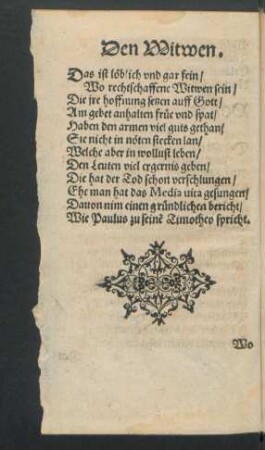 Den Witwen.
Das ist löblich vnd gar fein/
Wo rechtschaffene Witwen sein/
Die jre hoffnung setzen auff Gott/
Am gebet anhalten früe vnd spat/
Haben den armen viel guts gethan/
Sie nicht in nöten stecken lan/
Welche aber in wollust leben/
Den Leuten viel ergernis geben/
Die hat der Tod schon verschlungen/
Ehe man hat das Media vita gesungen/
Dauon nim einen gründlichen bericht/
Wie Paulus zu seinē Timotheo spricht.
Wo